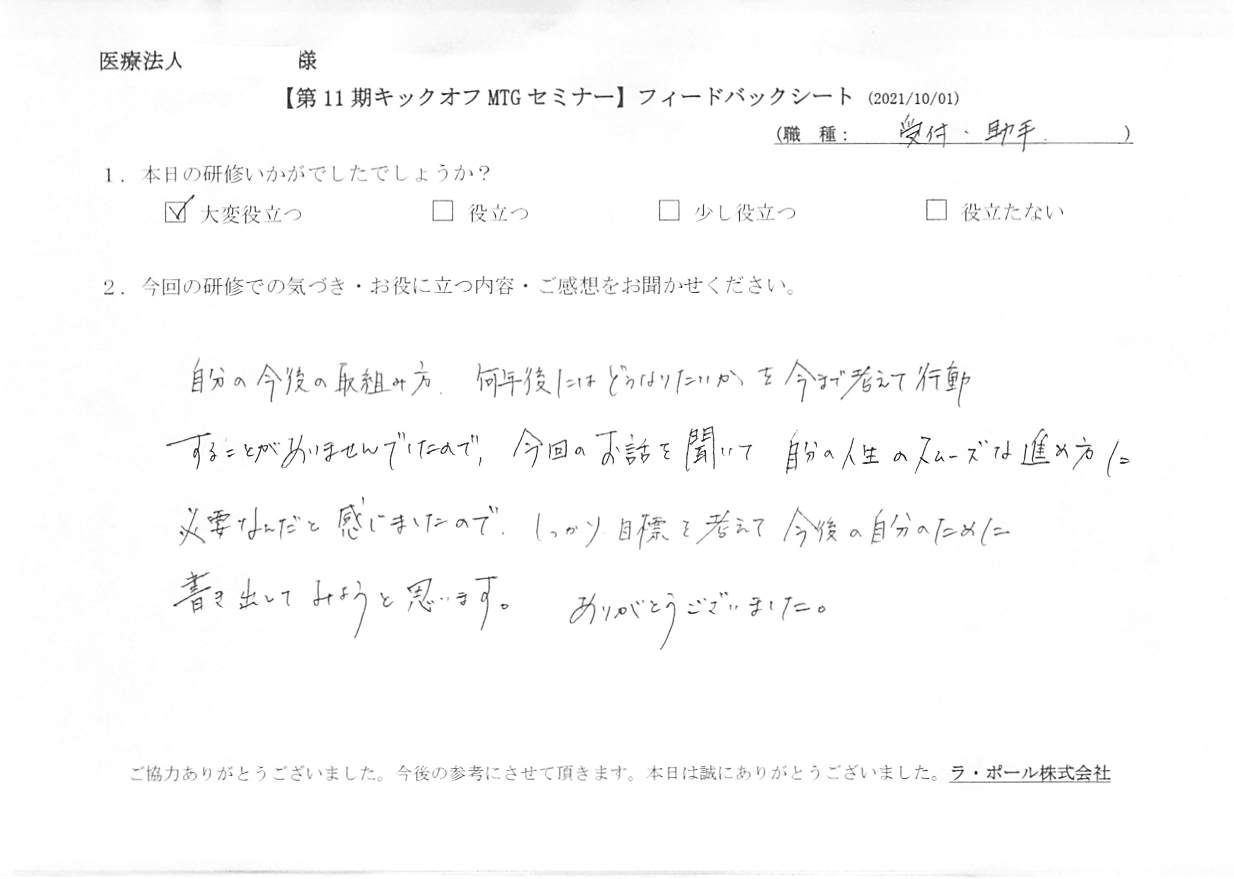 医療法人 様
【第11期キックオフMTGセミナー】フィードバックシート (2021/10/01)
(職 種： 受付・助手 )
１．本日の研修いかがでしたでしょうか？
☑ 大変役立つ □ 役立つ □ 少し役立つ □ 役立たない
２．今回の研修での気づき・お役に立つ内容・ご感想をお聞かせください。
自分の今後の取組み方、何年後にはどうなりたいかを今まで考えて行動
することがありませんでしたので、今回のお話を聞いて 自分の人生のスムーズな進め方に
必要なんだと感じましたので、しっかり目標を考えて今後の自分のために
書き出してみようと思います。 ありがとうございました。
ご協力ありがとうございました。今後の参考にさせて頂きます。本日は誠にありがとうございました。ラ・ポール株式会社